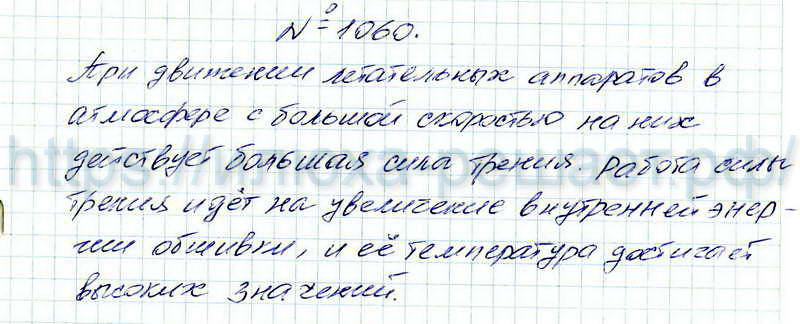 № 1060.
При движении летательных аппаратов в
атмосфере с большой скоростью на них
действует большая сила трения. Работа силы
трения идёт на увеличение внутренней энер-
гии обшивки, и её температура достигает
высоких значений.